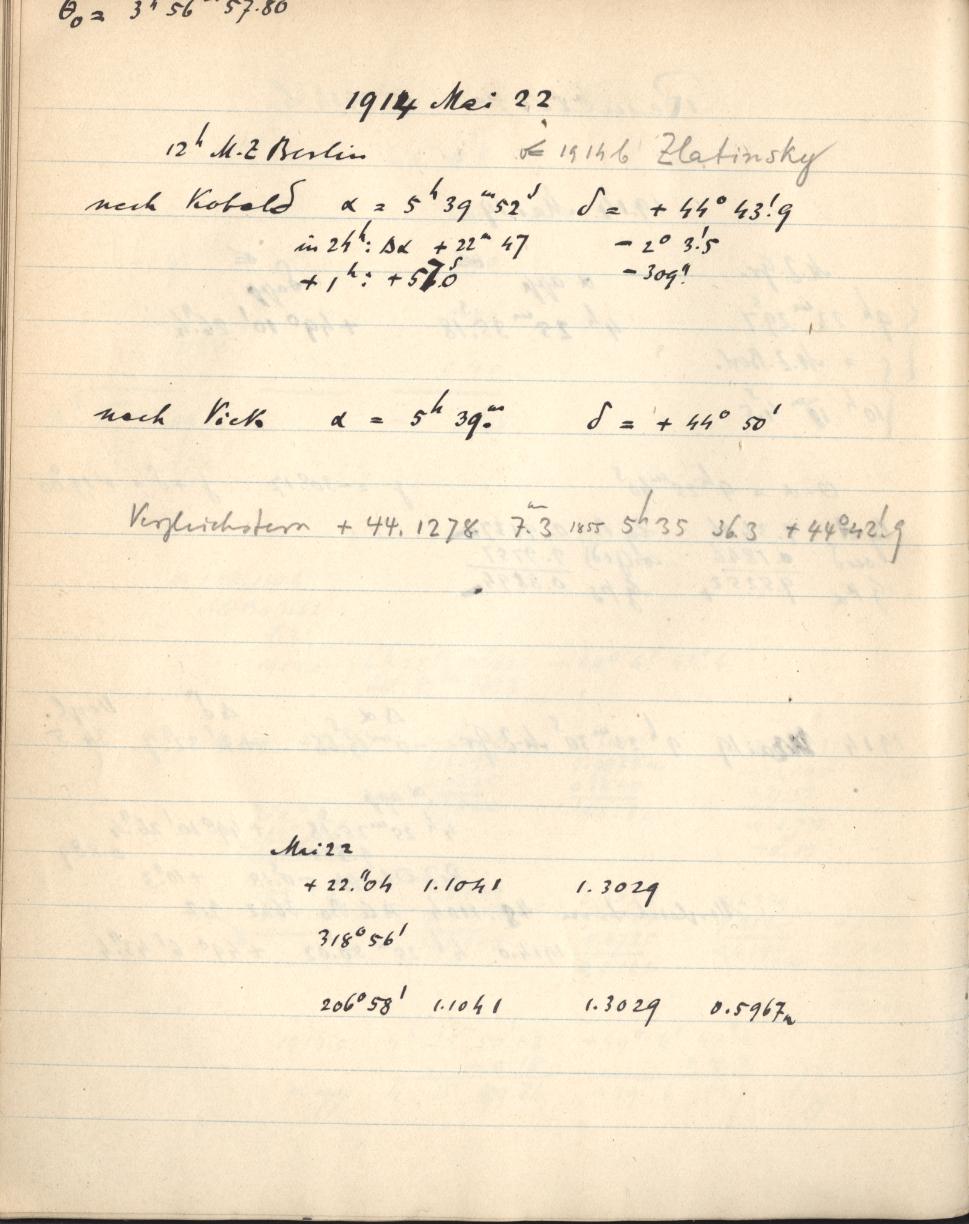 θ₀ = 3ʰ 56ᵐ 57.80
1914 Mai 22
12ʰ M.Z Berlin ☄ 1914b Zlatinsky
nach Kobold α = 5ʰ 39ᵐ 52ˢ δ = + 44° 43!9
in 24ʰ: Δα + 22ᵐ 47 - 2° 3!5
+ 1ʰ: + 57.0ˢ - 309"
nach Vick α = 5ʰ 39ᵐ. δ = + 44° 50'
Vergleichstern + 44. 1278 7.ᵐ3 1855 5ʰ 35 36.3 + 44° 42!9
Mai 22
+ 22."04 1.1041 1.3029
318° 56'
206° 58' 1.1041 1.3029 0.5967ₙ